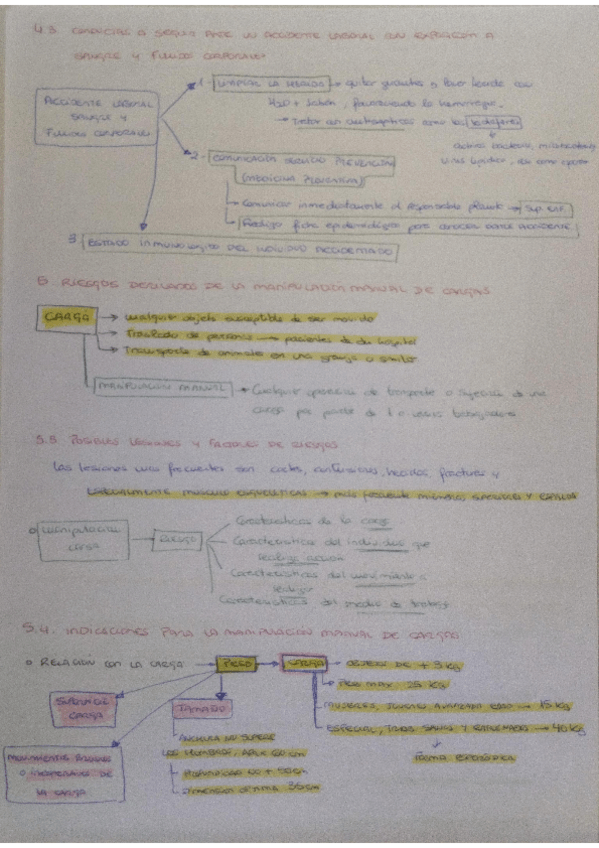 4.3. CONDUCTAS A SEGUIR ANTE UN ACCIDENTE LABORAL CON EXPOSICIÓN A
SANGRE Y FLUIDOS CORPORALES
ACCIDENTE LABORAL
SANGRE Y
FLUIDOS CORPORALES
1- LIMPIAR LA HERIDA → quitar guantes y lavar herida con
H2O + Jabón, favoreciendo la hemorragia.
→ Tratar con antisépticos como los
2- COMUNICACIÓN SERVICIO PREVENCIÓN
(MEDICINA PREVENTIVA)
Comunicar inmediatamente al responsable → Sup. enf.
Realizar ficha epidemiológica para conocer ACCIDENTE
3. ESTADO INMUNOLÓGICO DEL INDIVIDUO ACCIDENTADO
5. RIESGOS DERIVADOS DE LA MANIPULACIÓN MANUAL DE CARGAS
CARGA → cualquier objeto susceptible de ser movido
→ Traslado de personas → pacientes de un hospital
→ Transporte de animales en una granja o similar
MANIPULACIÓN MANUAL → Cualquier operación de transporte o sujeción de una
carga por parte de 1 o varios trabajadores
5.3. POSIBLES LESIONES Y FACTORES DE RIESGOS
Las lesiones más frecuentes son: cortes, contusiones, heridas, fracturas y
ESPECIALMENTE MUSCULO ESQUELÉTICAS → más frecuente miembros SUPERIORES Y ESPALDA
o Manipulación
CARGA
→ RIESGO
Características de la carga
Características del individuo que
realiza acción
Características del movimiento a
realizar
Características del medio de trabajo
5.4. INDICACIONES PARA LA MANIPULACIÓN MANUAL DE CARGAS
o RELACIÓN CON LA CARGA → PESO → CARGA → OBJETO DE + 3 Kg
→ PESO MAX. 25 Kg
SUJECIÓN DE
CARGA
TAMAÑO
MUJERES, JÓVENES, AVANZADA EDAD → 15 kg
ESPECIAL, TRAB. SANOS Y ENTRENADOS → 40 kg
ANCHURA NO SUPERE
LOS HOMBROS, APROX 60 cm
FORMA ESPORÁDICA
MOVIMIENTOS BRUSCOS
O INESPERADOS DE
LA CARGA
PROFUNDIDAD NO + 50 cm
DIMENSIÓN ÓPTIMA 35 cm